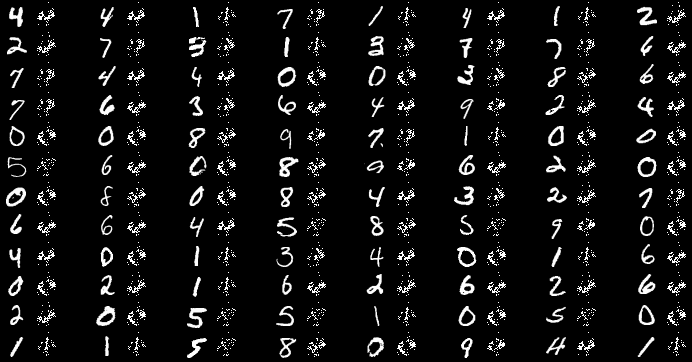 4 4 1 7 1 4 1 2
2 7 3 1 3 7 7 6
7 4 4 0 0 3 8 6
7 6 3 6 4 9 2 4
0 0 8 9 7 1 0 0
5 6 0 8 9 6 2 0
0 8 0 8 4 3 2 7
6 6 4 5 8 5 9 0
4 0 1 3 4 0 1 6
0 2 1 6 2 6 2 6
2 0 5 5 1 0 5 0
1 1 5 8 0 9 4 1